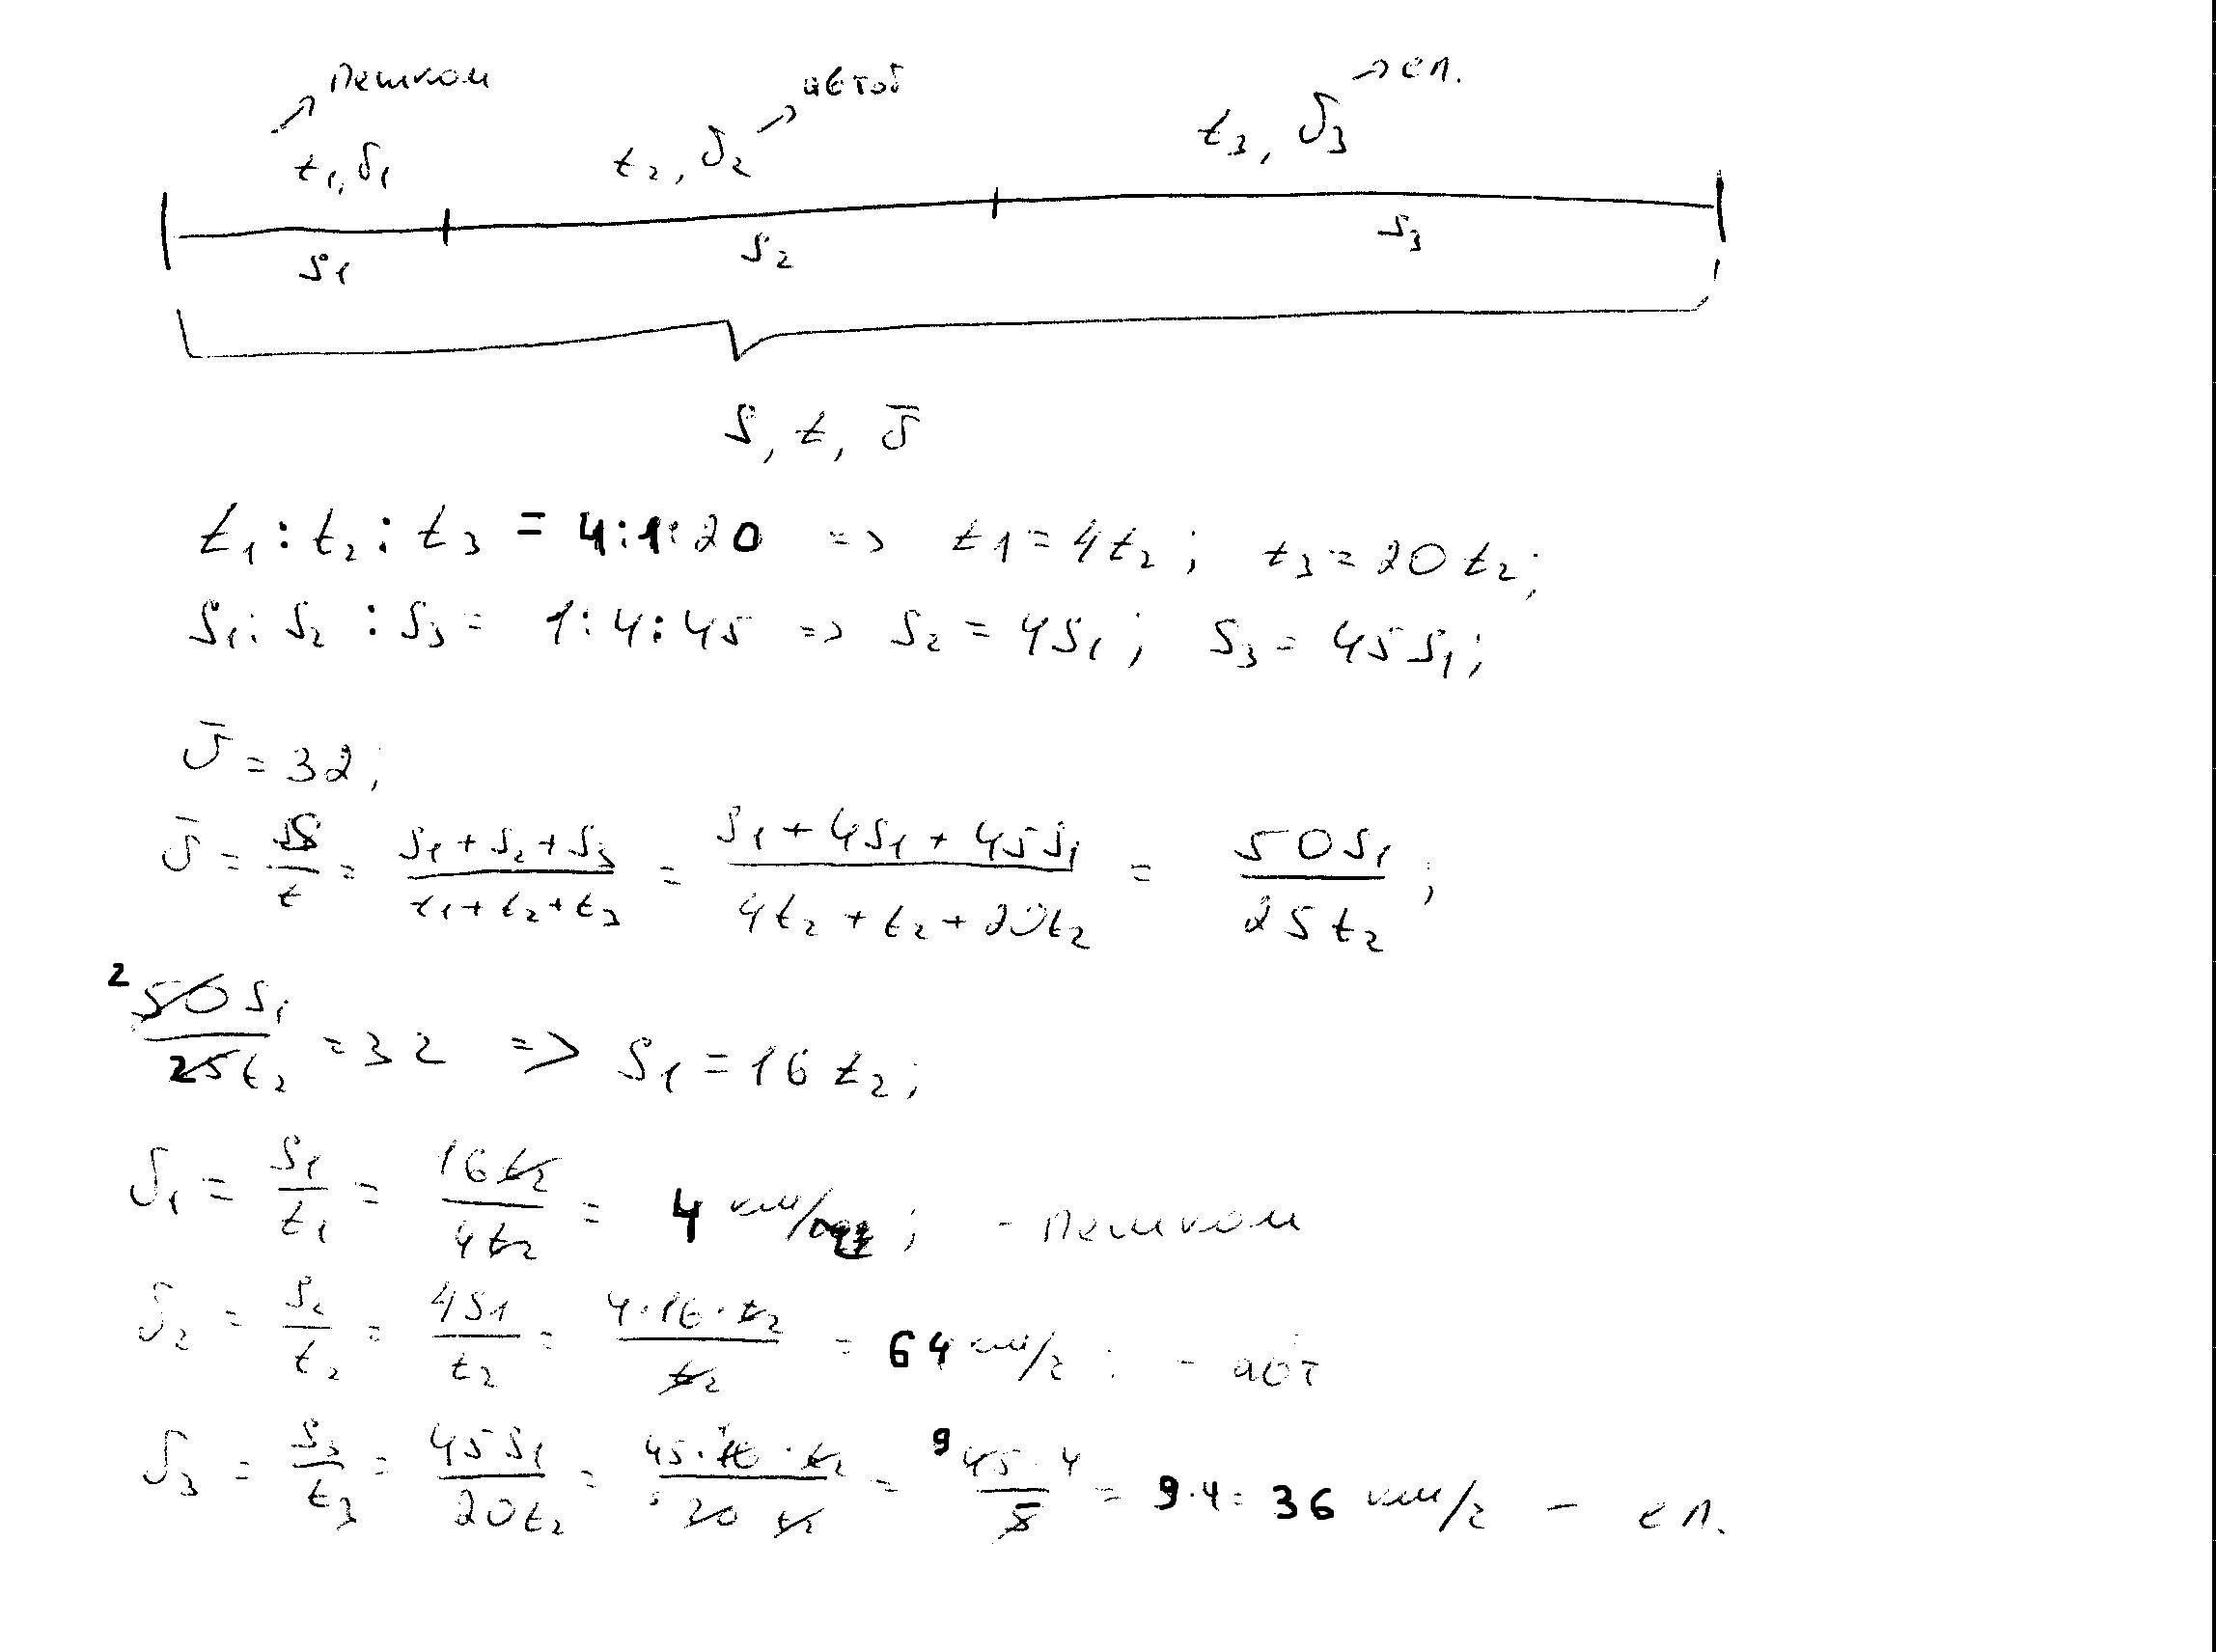 пешком автоб ел.
t₁, υ₁ t₂, υ₂ t₃, υ₃
S₁ S₂ S₃
S, t, ῡ
t₁ : t₂ : t₃ = 4:1:20 => t₁ = 4t₂; t₃ = 20t₂;
S₁ : S₂ : S₃ = 1:4:45 => S₂ = 4S₁; S₃ = 45S₁;
ῡ = 32;
ῡ = S/t = (S₁+S₂+S₃)/(t₁+t₂+t₃) = (S₁+4S₁+45S₁)/(4t₂+t₂+20t₂) = 50S₁/25t₂;
2 50S₁/25t₂ = 32 => S₁ = 16t₂;
υ₁ = S₁/t₁ = 16t₂/4t₂ = 4 км/ч; - пешком
υ₂ = S₂/t₂ = 4S₁/t₂ = 4·16·t₂/t₂ = 64 км/г; - авт
υ₃ = S₃/t₃ = 45S₁/20t₂ = 45·16·t₂/20t₂ = 9 45·4/5 = 9·4 = 36 км/г - ел.